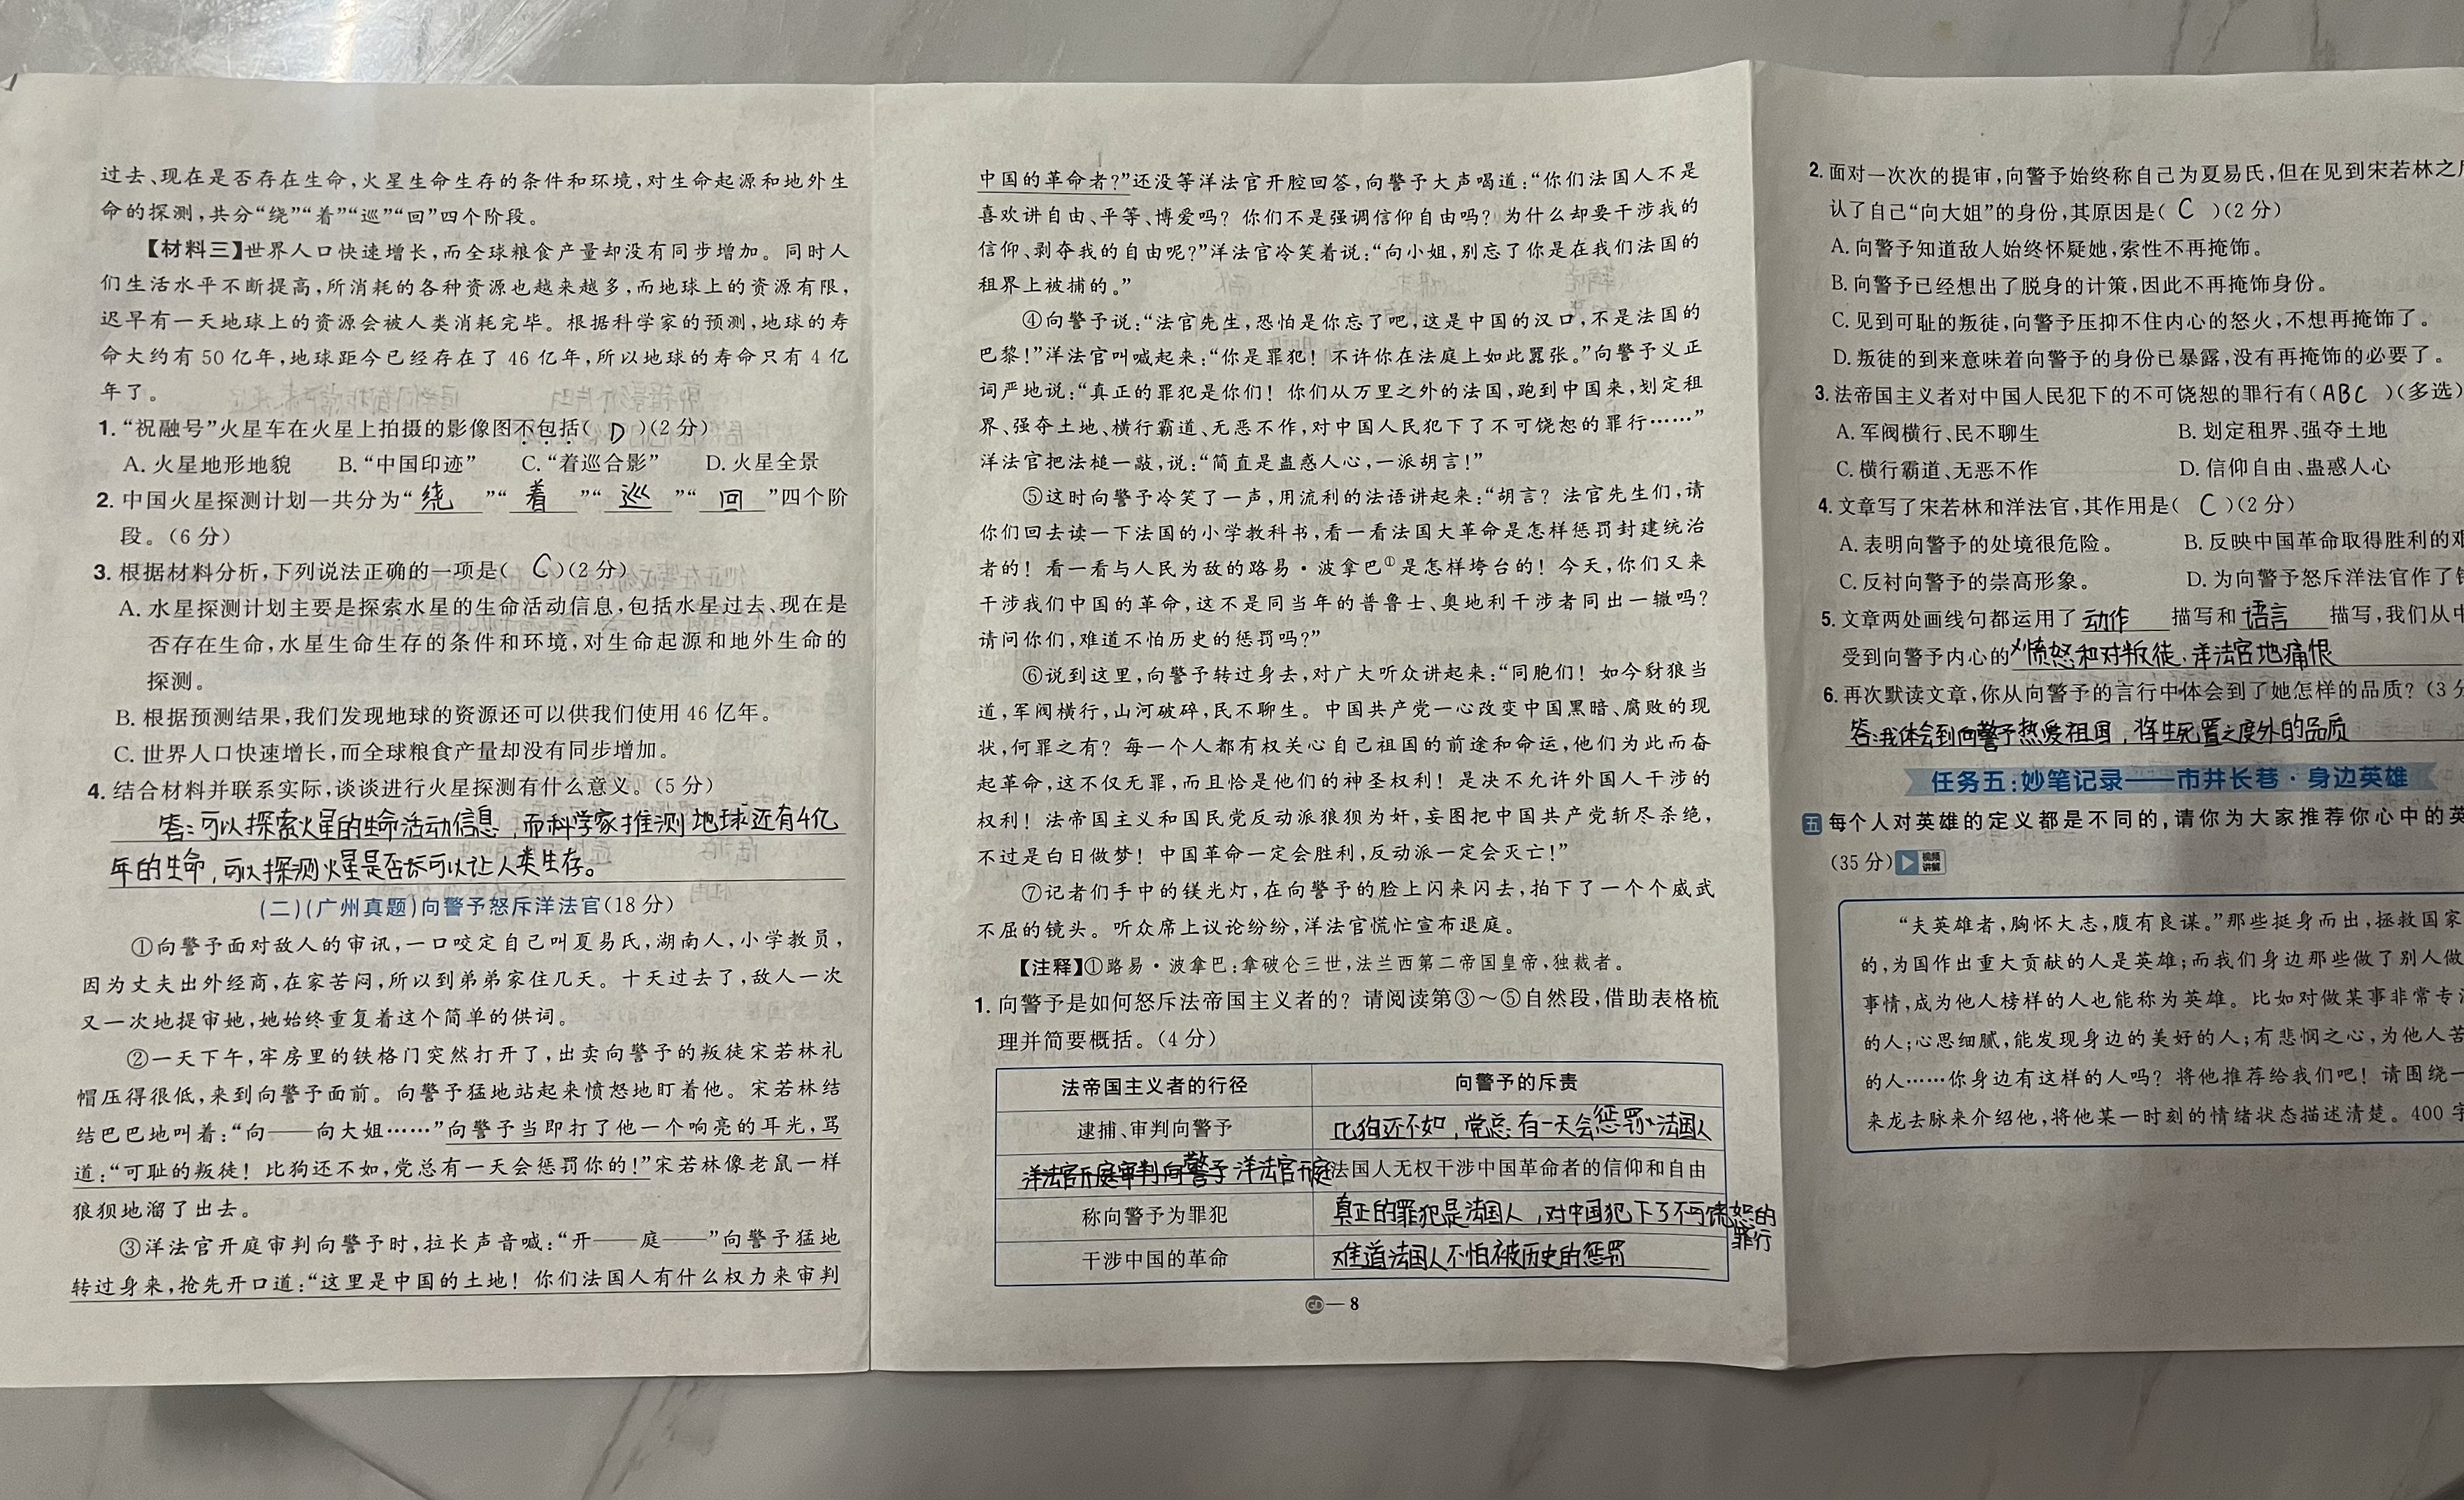 过去、现在是否存在生命,火星生命生存的条件和环境,对生命起源和地外生
命的探测,共分“绕”“着”“巡”“回”四个阶段。
【材料三】世界人口快速增长,而全球粮食产量却没有同步增加。同时人
们生活水平不断提高,所消耗的各种资源也越来越多,而地球上的资源有限,
迟早有一天地球上的资源会被人类消耗完毕。根据科学家的预测,地球的寿
命大约有 50 亿年,地球距今已经存在了 46 亿年,所以地球的寿命只有 4 亿
年了。
1. “祝融号”火星车在火星上拍摄的影像图不包括( D )(2 分)
A. 火星地形地貌 B. “中国印迹” C. “着巡合影” D. 火星全景
2. 中国火星探测计划一共分为“ 绕 ”“ 着 ”“ 巡 ”“ 回 ”四个阶
段。(6 分)
3. 根据材料分析,下列说法正确的一项是( C )(2 分)
A. 水星探测计划主要是探索水星的生命活动信息,包括水星过去、现在是
否存在生命,水星生命生存的条件和环境,对生命起源和地外生命的
探测。
B. 根据预测结果,我们发现地球的资源还可以供我们使用 46 亿年。
C. 世界人口快速增长,而全球粮食产量却没有同步增加。
4. 结合材料并联系实际,谈谈进行火星探测有什么意义。(5 分)
答:可以探索火星的生命活动信息,而科学家推测地球还有4亿
年的生命,可以探测火星是否可以让人类生存。
(二)(广州真题)向警予怒斥洋法官(18 分)
①向警予面对敌人的审讯,一口咬定自己叫夏易氏,湖南人,小学教员,
因为丈夫出外经商,在家苦闷,所以到弟弟家住几天。十天过去了,敌人一次
又一次地提审她,她始终重复着这个简单的供词。
②一天下午,牢房里的铁格门突然打开了,出卖向警予的叛徒宋若林礼
帽压得很低,来到向警予面前。向警予猛地站起来愤怒地盯着他。宋若林结
结巴巴地叫着:“向——向大姐……”向警予当即打了他一个响亮的耳光,骂
道:“可耻的叛徒!比狗还不如,党总有一天会惩罚你的!”宋若林像老鼠一样
狼狈地溜了出去。
③洋法官开庭审判向警予时,拉长声音喊:“开——庭——”向警予猛地
转过身来,抢先开口道:“这里是中国的土地!你们法国人有什么权力来审判
中国的革命者?”还没等洋法官开腔回答,向警予大声喝道:“你们法国人不是
喜欢讲自由、平等、博爱吗?你们不是强调信仰自由吗?为什么却要干涉我的
信仰、剥夺我的自由呢?”洋法官冷笑着说:“向小姐,别忘了你是在我们法国的
租界上被捕的。”
④向警予说:“法官先生,恐怕是你忘了吧,这是中国的汉口,不是法国的
巴黎!”洋法官叫喊起来:“你是罪犯!不许你在法庭上如此嚣张。”向警予义正
词严地说:“真正的罪犯是你们!你们从万里之外的法国,跑到中国来,划定租
界、强夺土地、横行霸道、无恶不作,对中国人民犯下了不可饶恕的罪行……”
洋法官把法槌一敲,说:“简直是蛊惑人心,一派胡言!”
⑤这时向警予冷笑了一声,用流利的法语讲起来:“胡言?法官先生们,请
你们回去读一下法国的小学教科书,看一看法国大革命是怎样惩罚封建统治
者的!看一看与人民为敌的路易·波拿巴①是怎样垮台的!今天,你们又来
干涉我们中国的革命,这不是同当年的普鲁士、奥地利干涉者同出一辙吗?
请问你们,难道不怕历史的惩罚吗?”
⑥说到这里,向警予转过身去,对广大听众讲起来:“同胞们!如今豺狼当
道,军阀横行,山河破碎,民不聊生。中国共产党一心改变中国黑暗、腐败的现
状,何罪之有?每一个人都有权关心自己祖国的前途和命运,他们为此而奋
起革命,这不仅无罪,而且恰是他们的神圣权利!是决不允许外国人干涉的
权利!法帝国主义和国民党反动派狼狈为奸,妄图把中国共产党斩尽杀绝,
不过是白日做梦!中国革命一定会胜利,反动派一定会灭亡!”
⑦记者们手中的镁光灯,在向警予的脸上闪来闪去,拍下了一个个威武
不屈的镜头。听众席上议论纷纷,洋法官慌忙宣布退庭。
【注释】①路易·波拿巴:拿破仑三世,法兰西第二帝国皇帝,独裁者。
1. 向警予是如何怒斥法帝国主义者的?请阅读第③~⑤自然段,借助表格梳
理并简要概括。(4 分)
法帝国主义者的行径 向警予的斥责
逮捕、审判向警予 比狗还不如,党总有一天会惩罚法国人
洋法官开庭审判向警予 洋法官开庭 法国人无权干涉中国革命者的信仰和自由
称向警予为罪犯 真正的罪犯是法国人,对中国犯下了不可饶恕的
罪行
干涉中国的革命 难道法国人不怕被历史的惩罚
GD — 8
2. 面对一次次的提审,向警予始终称自己为夏易氏,但在见到宋若林之
认了自己“向大姐”的身份,其原因是( C )(2 分)
A. 向警予知道敌人始终怀疑她,索性不再掩饰。
B. 向警予已经想出了脱身的计策,因此不再掩饰身份。
C. 见到可耻的叛徒,向警予压抑不住内心的怒火,不想再掩饰了。
D. 叛徒的到来意味着向警予的身份已暴露,没有再掩饰的必要了。
3. 法帝国主义者对中国人民犯下的不可饶恕的罪行有( ABC )(多选)
A. 军阀横行、民不聊生 B. 划定租界、强夺土地
C. 横行霸道、无恶不作 D. 信仰自由、蛊惑人心
4. 文章写了宋若林和洋法官,其作用是( C )(2 分)
A. 表明向警予的处境很危险。 B. 反映中国革命取得胜利的
C. 反衬向警予的崇高形象。 D. 为向警予怒斥洋法官作了
5. 文章两处画线句都运用了 动作 描写和 语言 描写,我们从
受到向警予内心的 愤怒和对叛徒、洋法官地痛恨
6. 再次默读文章,你从向警予的言行中体会到了她怎样的品质?(3
答:我体会到向警予热爱祖国,将生死置之度外的品质
任务五:妙笔记录——市井长巷·身边英雄
五 每个人对英雄的定义都是不同的,请你为大家推荐你心中的
(35 分) 视频讲解
“夫英雄者,胸怀大志,腹有良谋。”那些挺身而出,拯救国家
的,为国作出重大贡献的人是英雄;而我们身边那些做了别人做
事情,成为他人榜样的人也能称为英雄。比如对做某事非常专
的人;心思细腻,能发现身边的美好的人;有悲悯之心,为他人
的人……你身边有这样的人吗?将他推荐给我们吧!请围绕一
来龙去脉来介绍他,将他某一时刻的情绪状态描述清楚。400